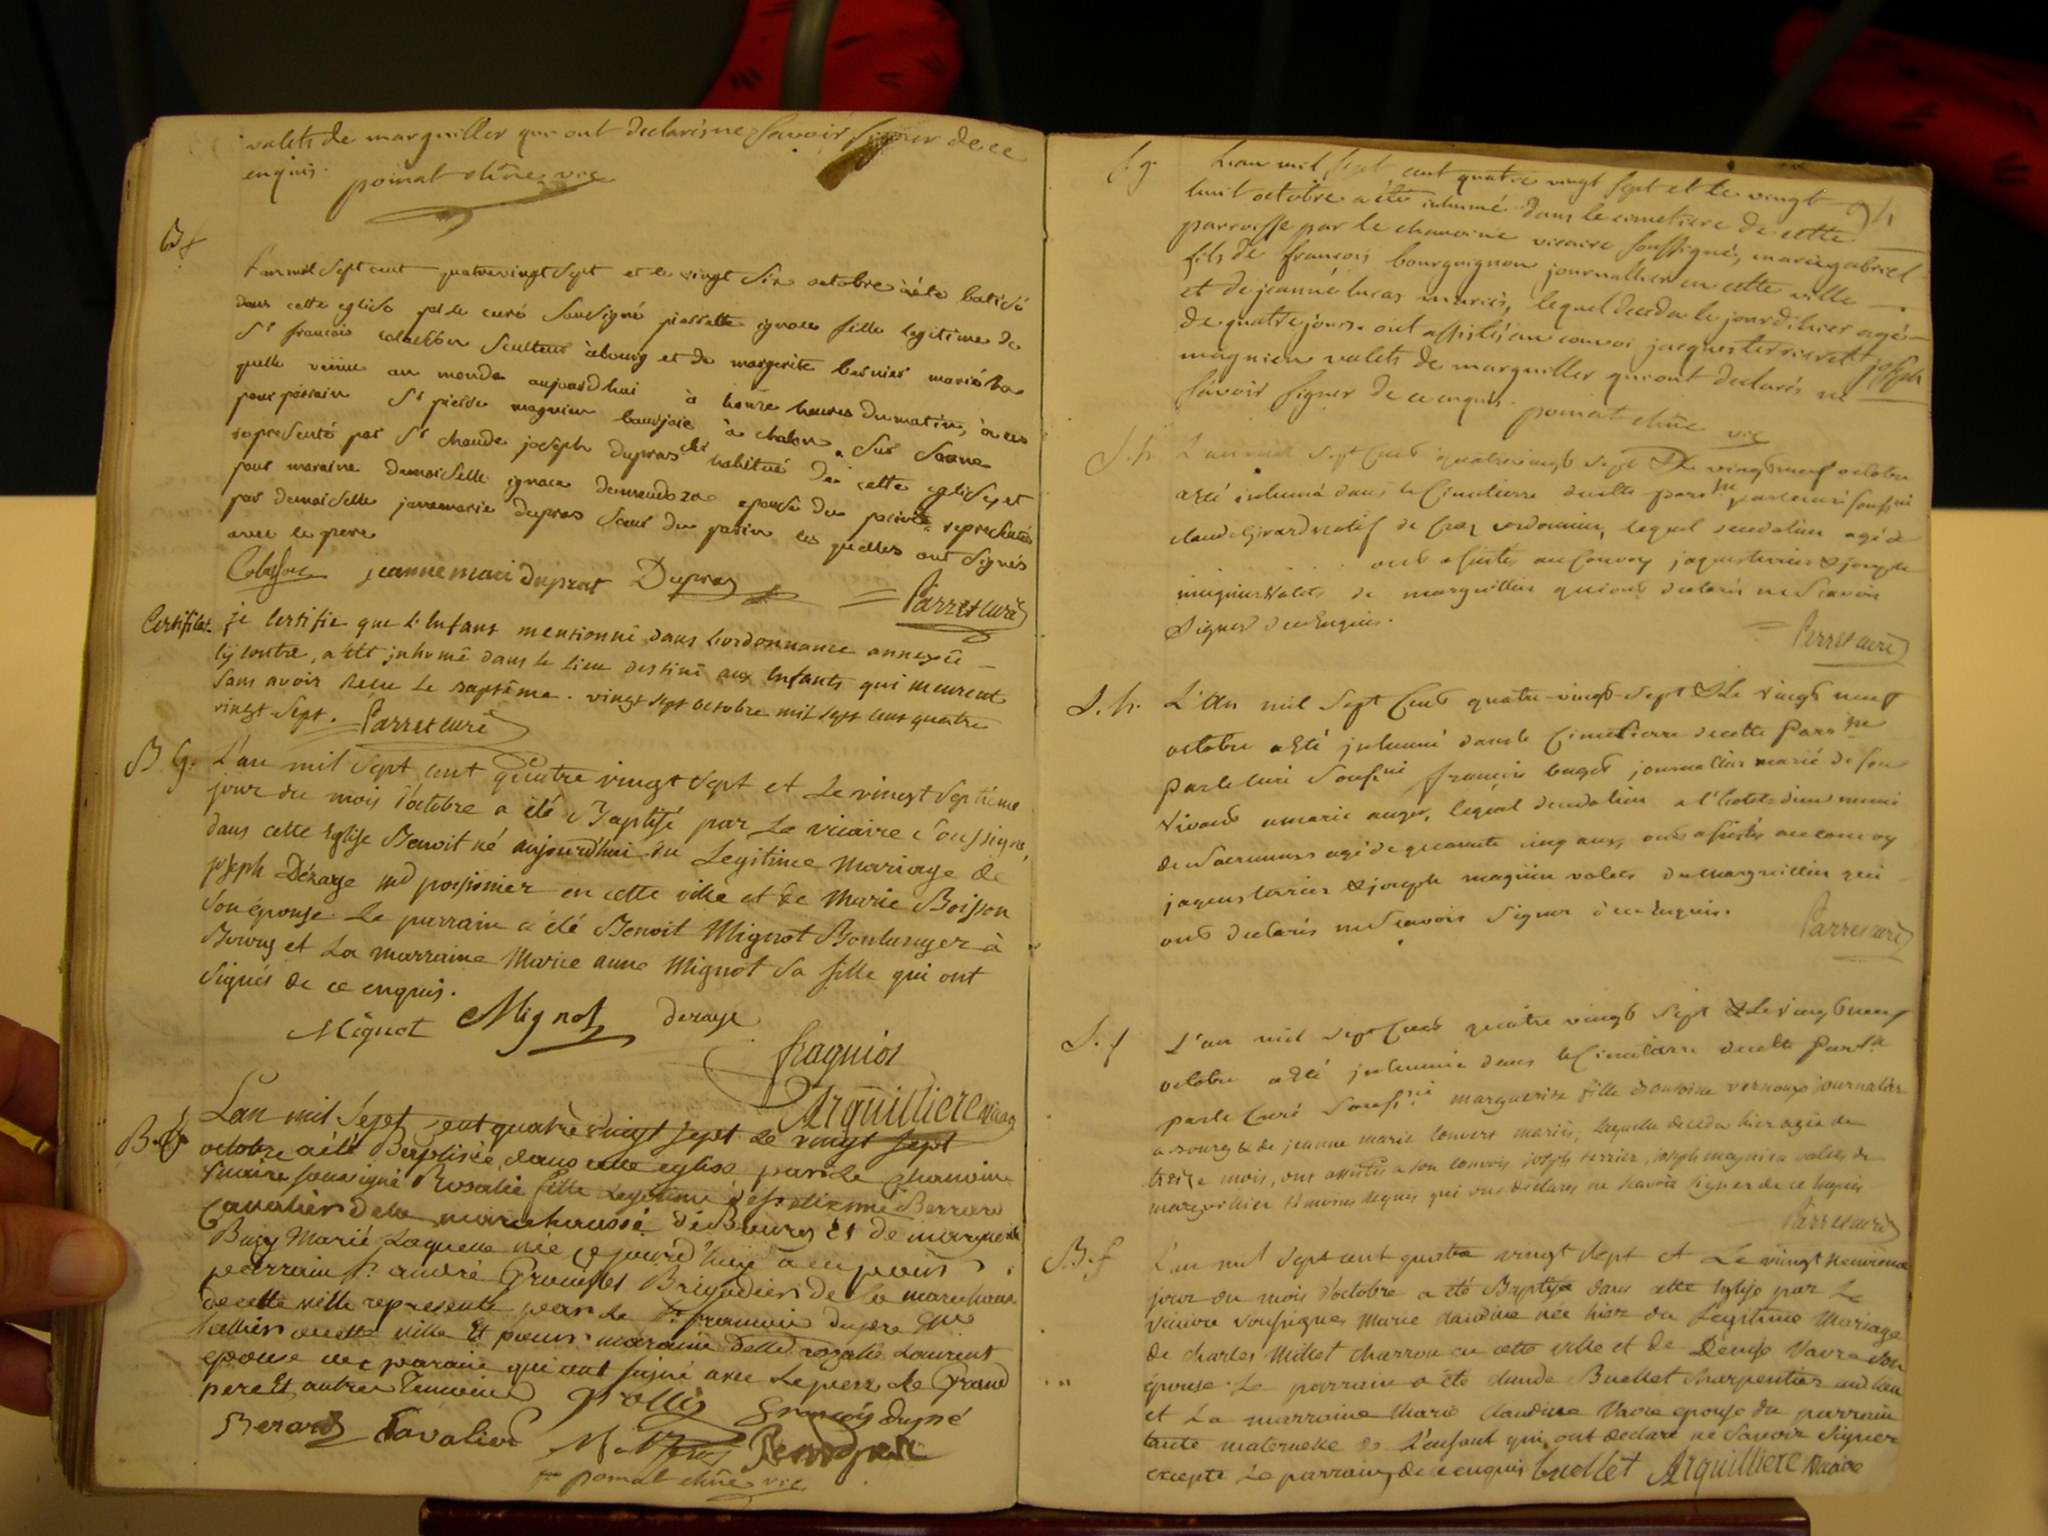 valets de marguiller qui ont declarés ne savoir signer de ce
enquis. poinat chne vic
Bf
L'an mil sept cent quatrevingt sept et le vingt six octobre a été batisé
dans cette eglise par le curé sousigné pierrette ignace fille legitime de
Sr francois colasson sculteur à bourg et de margerite bernier mariés la
quelle viénne au monde aujourdhui à honze heures du matin, à eu
pour parain Sr pierre magnien bourjois à chalon sur Saone
representé par Sr claude joseph dupras habitué de cette eglise, et
pour maraine demoiselle ignace epouse du parain representée
par demoiselle jannemarie dupras sœur du parin les quelles ont signés
avec le pere
Colasson jeanne mari duprat Dupras Parret curé
Certificat. je certifie que l'enfant mentionné dans l'ordonnance annexée
cy contre, a été inhumé dans le lieu destiné aux enfants qui meurent
sans avoir recu le baptême. vingt sept octobre mil sept cent quatre
vingt sept. Parret curé
B. G. L'an mil sept cent quatre vingt sept et le vingt septieme
jour du mois d'octobre a été Baptisé par le vicaire soussigné,
dans cette Eglise Benoit né aujourd'hui du Legitime Mariage de
joseph Dézaye md poissonier en cette ville et de Marie Boisson
son épouse. Le parrain a été Benoit Mignot Boulanger à
Bourg et La marraine Marie anne Mignot sa fille qui ont
signés de ce enquis.
Mignot Mignot dezaye
fraguior
Arquilliere vicaire
B. f. L'an mil sept cent quatre vingt sept le vingt sept
octobre a été Baptisée dans cette eglise par le chanoine
vicaire sousigné Rosalie fille Legitime de Sr etienne Berrard
Cavalier de la marechaussé de Bourg Et de marguerite
Buzy Marié Laquelle née ce jourd'huy a eu pour
parrain Sr andré Brigadier de la marechaussé
de cette ville representé par le Sr francois dupré
sellier en cette ville Et pour maraine delle rozalie Laurent
epouse du paraine qui ont signé avec le pere Le Grand
pere Et autre Temoins
Berard Cavalier françois dupré
poinat chne vic
S. g. L'an mil sept cent quatre vingt sept et le vingt
huit octobre a été inhumé dans le cimetiere de cette
parroisse par le chanoine vicaire soussigné, marie gabriel
fils de francois bourguignon journallier en cette ville
et de jeanne lucas mariés, lequel deceda le jour d'hier agé
de quatre jours. ont assistés au convoi jacques terrier et joseph
magnien valets de marguiller qui ont declarés ne
savoir signer de ce enquis. poinat chne vic
S. h. L'an mil sept cent quatre vingt sept & le vingt neuf octobre
a été inhumé dans le Cimetierre de cette parsse par le curé soussné
claude Girard natif de lequel deceda hier agé de
ont assistés au convoy jaques terrier & joseph
magnien valets de marguillier qui ont declarés ne Scavoir
Signer de ce Enquis.
Parret curé
S. h. L'An mil sept Cent quatre-vingt-sept & le vingt neuf
octobre a été inhumé dans le Cimetierre de cette Parsse
par le curé soussné francois buget journallier marié de son
vivant a marie auger, lequel deceda hier a l'hotel dieu muni
de sacremens agé de quarante cinq ans, ont assistés au convoy
jaques terrier & joseph magnien valets de marguillier qui
ont declarés ne Scavoir Signer de ce Enquis.
Parret curé
S. f L'an mil sept Cent quatre vingt sept & le vingt neuf
octobre a été inhumée dans le Cimetierre de cette Parsse
par le Curé soussné marguerite fille d'antoine vernoux journalier
a bourg & de jeanne marie convert mariés, laquelle deceda hier agée de
treize mois, ont assistés a son convois joseph terrier, joseph magnien valets de
marguillier temoins requis qui ont declarés ne scavoir signer de ce enquis
Parret curé
B. f L'an mil sept cent quatre vingt sept et Le vingt neuvieme
jour du mois d'octobre a été Baptisée dans cette Eglise par Le
vicaire soussigné Marie claudine née hier du Legitime Mariage
de charles Millet charron en cette ville et de Denise Vavre son
épouse. Le parrain a été claude Buellet charpentier
et La marraine Marie Claudine Vavre epouse du parrain
tante maternelle de L'enfant qui ont declaré ne savoir signer
excepté Le parrain, de ce enquis buellet Arquilliere vicaire